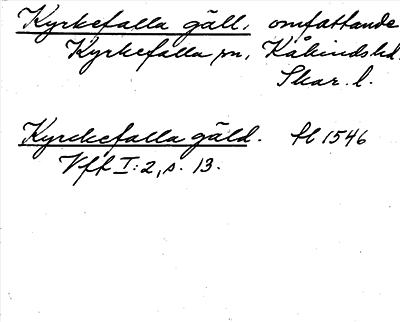 Kyrkefalla gäll, omfattande
Kyrkefalla sn, Kåkindshd.
Skar. l.
Kyrckefalla gäld. fl 1546
Vff I:2, s. 13.